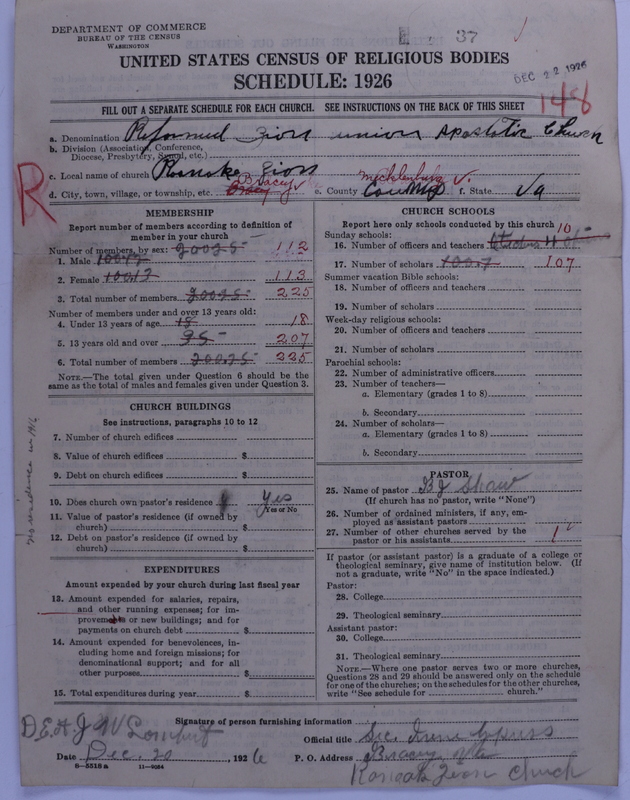 DEPARTMENT OF COMMERCE
BUREAU OF THE CENSUS
WASHINGTON
37
UNITED STATES CENSUS OF RELIGIOUS BODIES
SCHEDULE: 1926
DEC 22 1926
148
FILL OUT A SEPARATE SCHEDULE FOR EACH CHURCH. SEE INSTRUCTIONS ON THE BACK OF THIS SHEET
a. Denomination Reformed Zion union Apostolic Church
b. Division (Association, Conference,
Diocese, Presbytery, Synod, etc.)
c. Local name of church Zion
R
d. City, town, village, or township, etc. Bracey e. County Mecklenburg f. State Va
MEMBERSHIP
Report number of members according to definition of
member in your church
Number of members, by sex:
1. Male 112
2. Female 113
3. Total number of members 225
Number of members under and over 13 years old:
4. Under 13 years of age 18 18
5. 13 years old and over 95 207
6. Total number of members 225
NOTE.—The total given under Question 6 should be the
same as the total of males and females given under Question 3.
CHURCH BUILDINGS
See instructions, paragraphs 10 to 12
7. Number of church edifices
8. Value of church edifices $
9. Debt on church edifices $
10. Does church own pastor's residence Yes
Yes or No
11. Value of pastor's residence (if owned by
church) $
12. Debt on pastor's residence (if owned by
church) $
No residence in 1916
EXPENDITURES
Amount expended by your church during last fiscal year
13. Amount expended for salaries, repairs,
and other running expenses; for im-
provements or new buildings; and for
payments on church debt $
14. Amount expended for benevolences, in-
cluding home and foreign missions; for
denominational support; and for all
other purposes $
15. Total expenditures during year $
CHURCH SCHOOLS
Report here only schools conducted by this church
Sunday schools:
16. Number of officers and teachers 10
17. Number of scholars 107
Summer vacation Bible schools:
18. Number of officers and teachers
19. Number of scholars
Week-day religious schools:
20. Number of officers and teachers
21. Number of scholars
Parochial schools:
22. Number of administrative officers
23. Number of teachers—
a. Elementary (grades 1 to 8)
b. Secondary
24. Number of scholars—
a. Elementary (grades 1 to 8)
b. Secondary
PASTOR
25. Name of pastor B J Shaw
(If church has no pastor, write "None")
26. Number of ordained ministers, if any, em-
ployed as assistant pastors
27. Number of other churches served by the
pastor or his assistants 1
If pastor (or assistant pastor) is a graduate of a college or
theological seminary, give name of institution below. (If
not a graduate, write "No" in the space indicated.)
Pastor:
28. College
29. Theological seminary
Assistant pastor:
30. College
31. Theological seminary
NOTE.—Where one pastor serves two or more churches,
Questions 28 and 29 should be answered only on the schedule
for one of the churches; on the schedules for the other churches,
write "See schedule for church."
Signature of person furnishing information
Official title Sec. Irene
Date Dec. 20, 1926 P. O. Address Bracey
8-5518a 11-9084
Zion Church